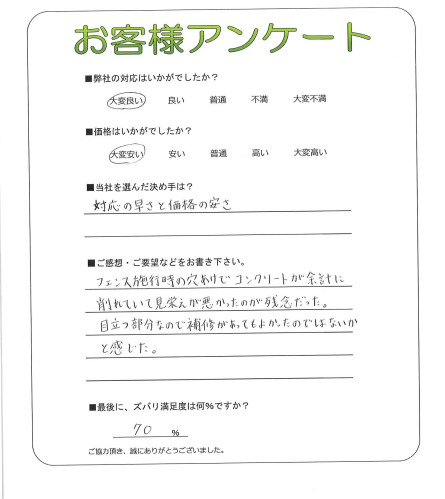 お客様アンケート
■弊社の対応はいかがでしたか?
大変良い 良い 普通 不満 大変不満
■価格はいかがでしたか?
大変安い 安い 普通 高い 大変高い
■当社を選んだ決め手は?
対応の早さと価格の安さ
■ご感想・ご要望などをお書き下さい。
フェンス施行時の穴あけでコンクリートが余計に
削れていて見栄えが悪かったのが残念だった。
目立つ部分なので補修があってもよかったのではないか
と感じた。
■最後に、ズバリ満足度は何%ですか?
70 %
ご協力頂き、誠にありがとうございました。